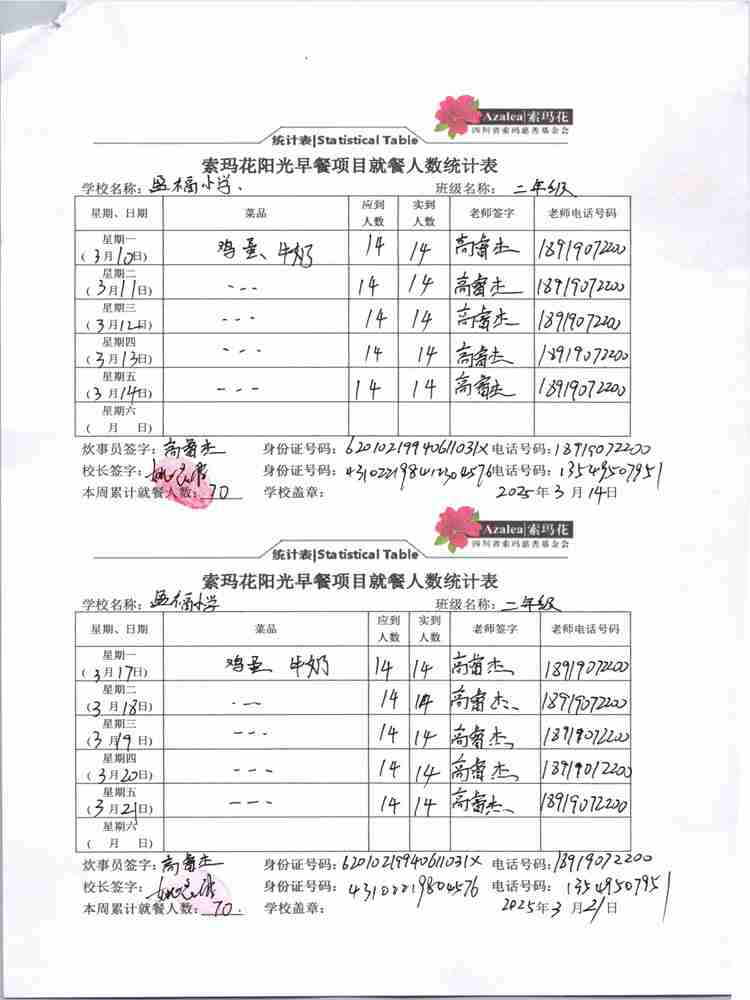 Azalea 索玛花
四川省索玛慈善基金会
统计表|Statistical Table
索玛花阳光早餐项目就餐人数统计表
学校名称：思福小学. 班级名称：二年级
星期、日期 菜品 应到人数 实到人数 老师签字 老师电话号码
星期一 (3月10日) 鸡蛋、牛奶 14 14 高睿杰 18919072200
星期二 (3月11日) --- 14 14 高睿杰 18919072200
星期三 (3月12日) --- 14 14 高睿杰 18919072200
星期四 (3月13日) --- 14 14 高睿杰 18919072200
星期五 (3月14日) --- 14 14 高睿杰 18919072200
星期六 ( 月 日)
炊事员签字：高睿杰 身份证号码：62010219940611031X 电话号码：18919072200
校长签字： 身份证号码： 电话号码：13549507951
本周累计就餐人数：70 学校盖章： 2025年3月14日
Azalea 索玛花
四川省索玛慈善基金会
统计表|Statistical Table
索玛花阳光早餐项目就餐人数统计表
学校名称：思福小学 班级名称：二年级
星期、日期 菜品 应到人数 实到人数 老师签字 老师电话号码
星期一 (3月17日) 鸡蛋、牛奶 14 14 高睿杰 18919072200
星期二 (3月18日) --- 14 14 高睿杰 18919072200
星期三 (3月19日) --- 14 14 高睿杰 18919072200
星期四 (3月20日) --- 14 14 高睿杰 18919012200
星期五 (3月21日) --- 14 14 高睿杰 18919072200
星期六 ( 月 日)
炊事员签字：高睿杰 身份证号码：62010219940611031X 电话号码：18919072200
校长签字： 身份证号码： 电话号码：13549507951
本周累计就餐人数：70. 学校盖章： 2025年3月21日